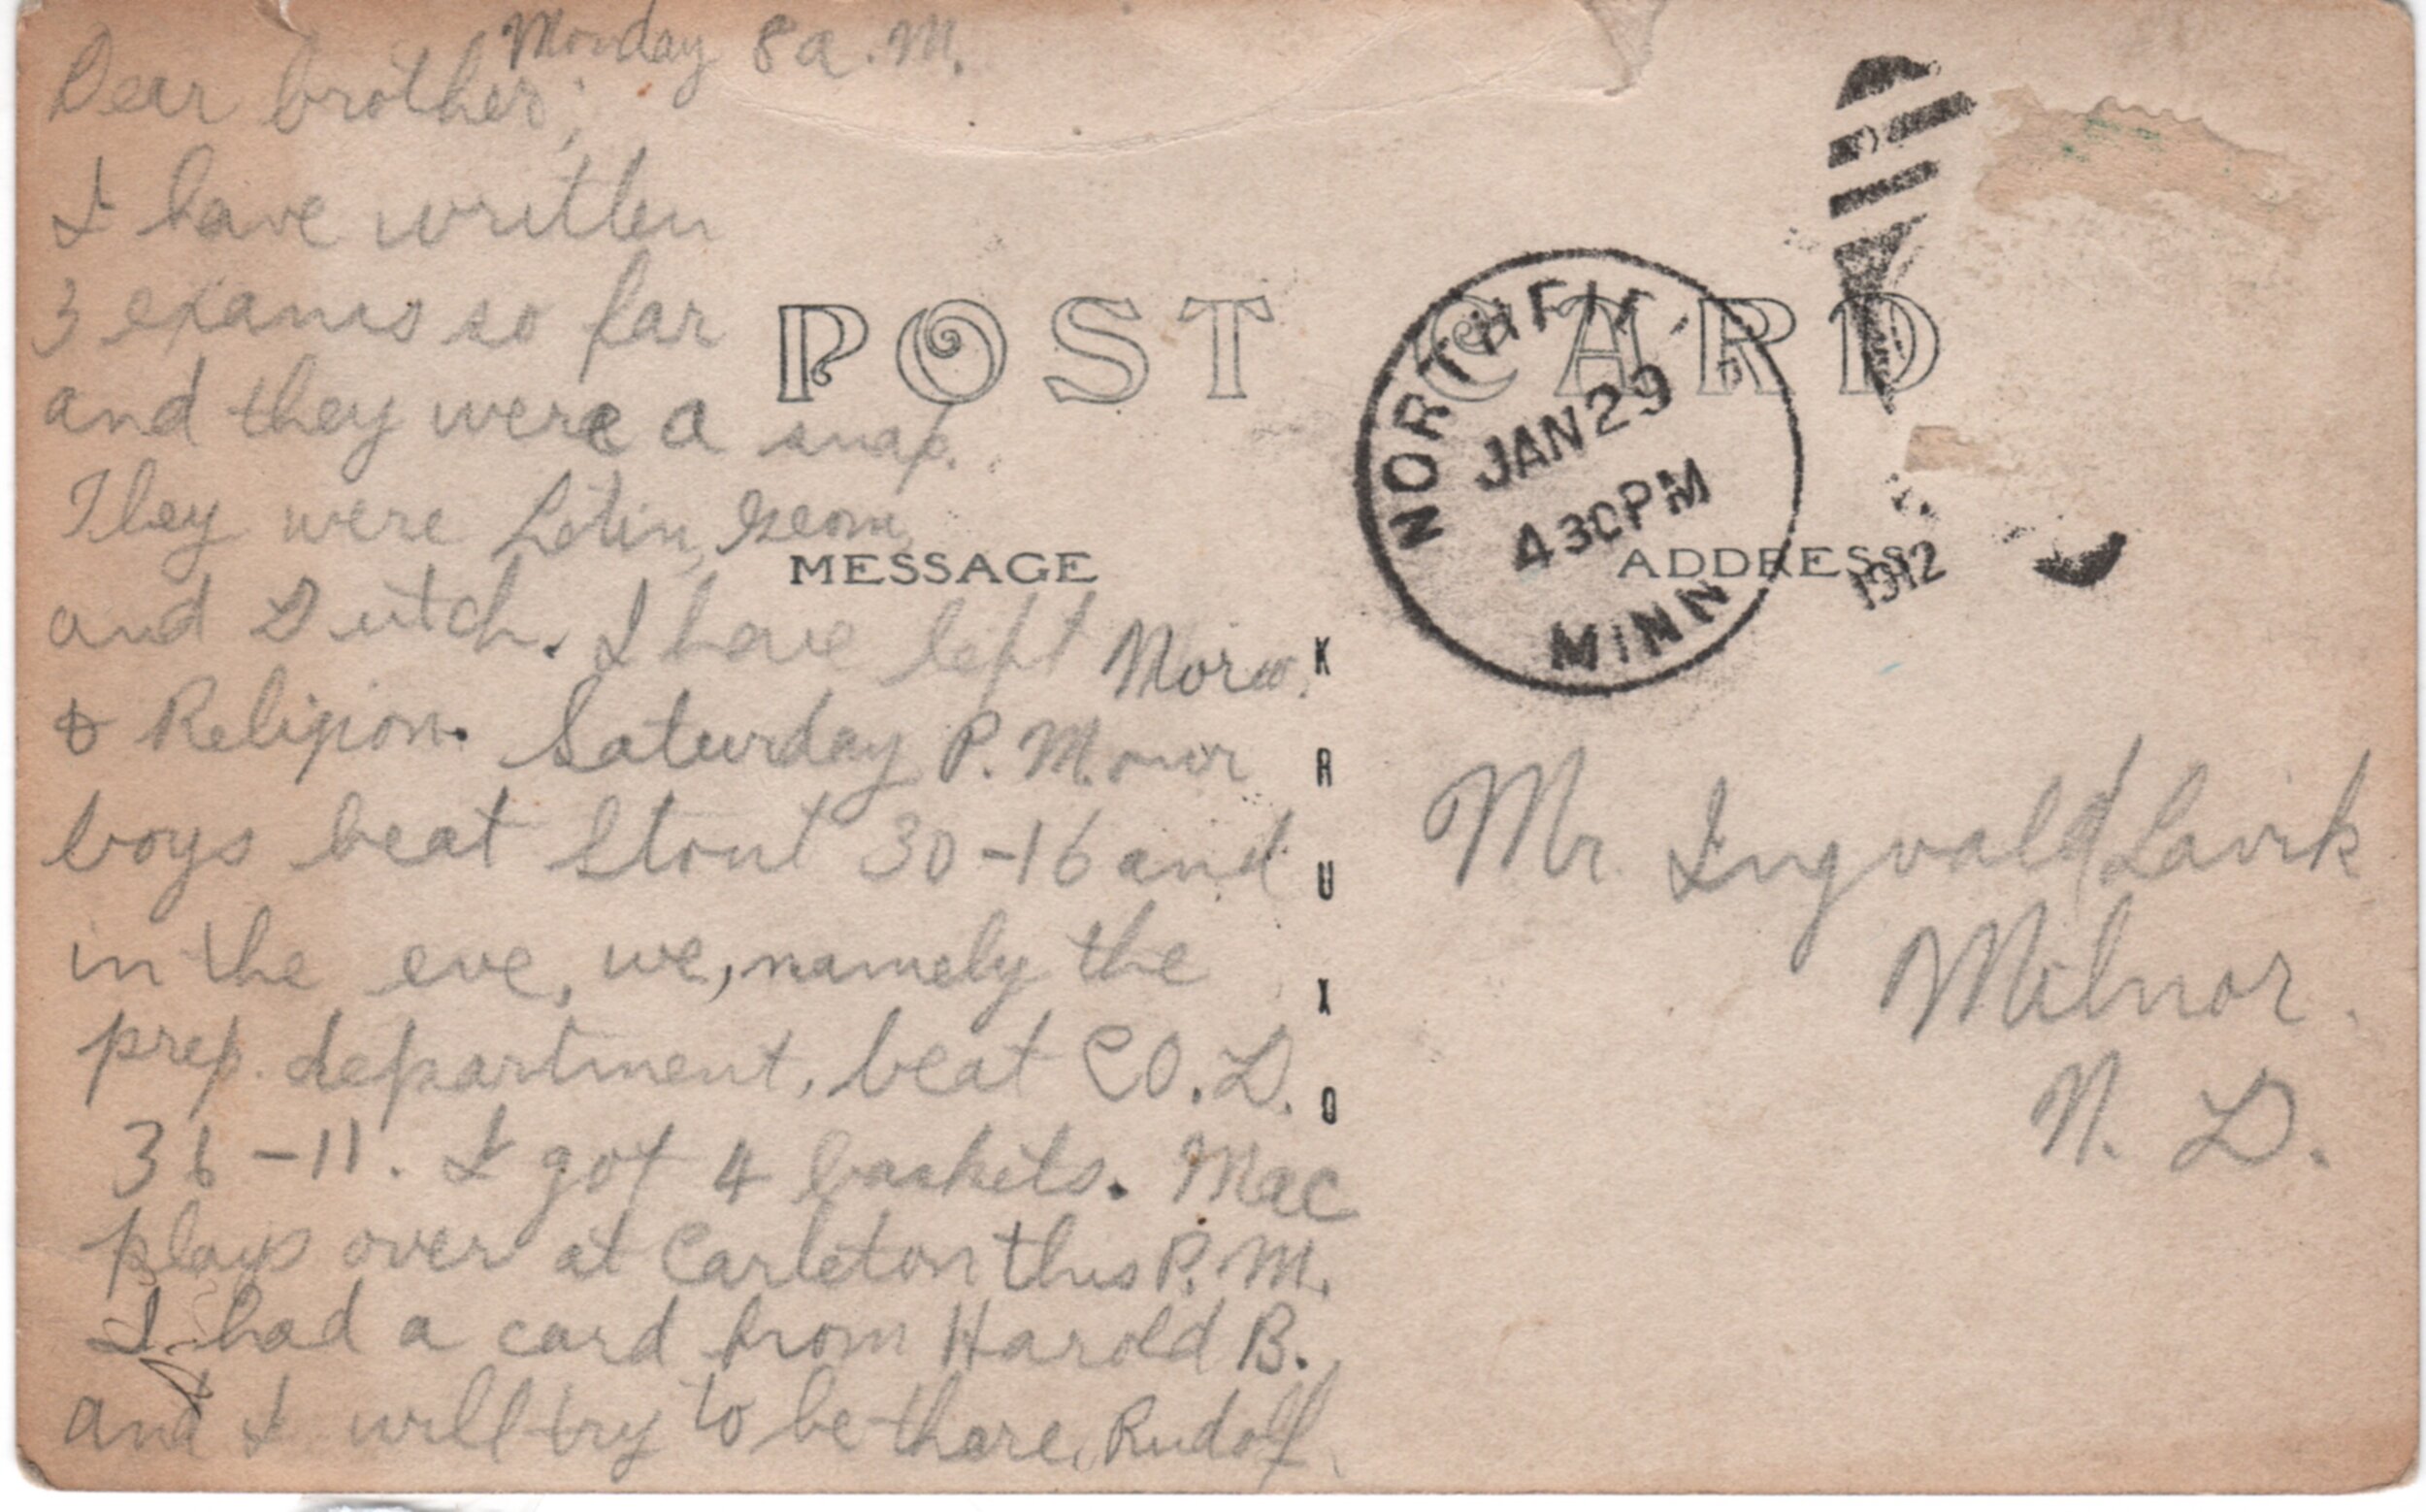 Monday 8 a.m.
Dear brother;
I have written
3 exams so far
and they were a snap.
They were Latin, Geom,
and Dutch. I have left
& Religion. Saturday P.M. our
boys beat Stout 30-16 and
in the eve, we, namely the
prep. department, beat CO.D.
36-11. I got 4 baskets. Mac
plays over at Carleton this P.M.
I had a card from Harold B.
and I will try to be there, Rudolf.
POST CARD
MESSAGE
ADDRESS
KRUXO
NORTHFIE
JAN 29
430PM
MINN
1912
Mr. Ingvald Lavik
Milnor.
N. D.